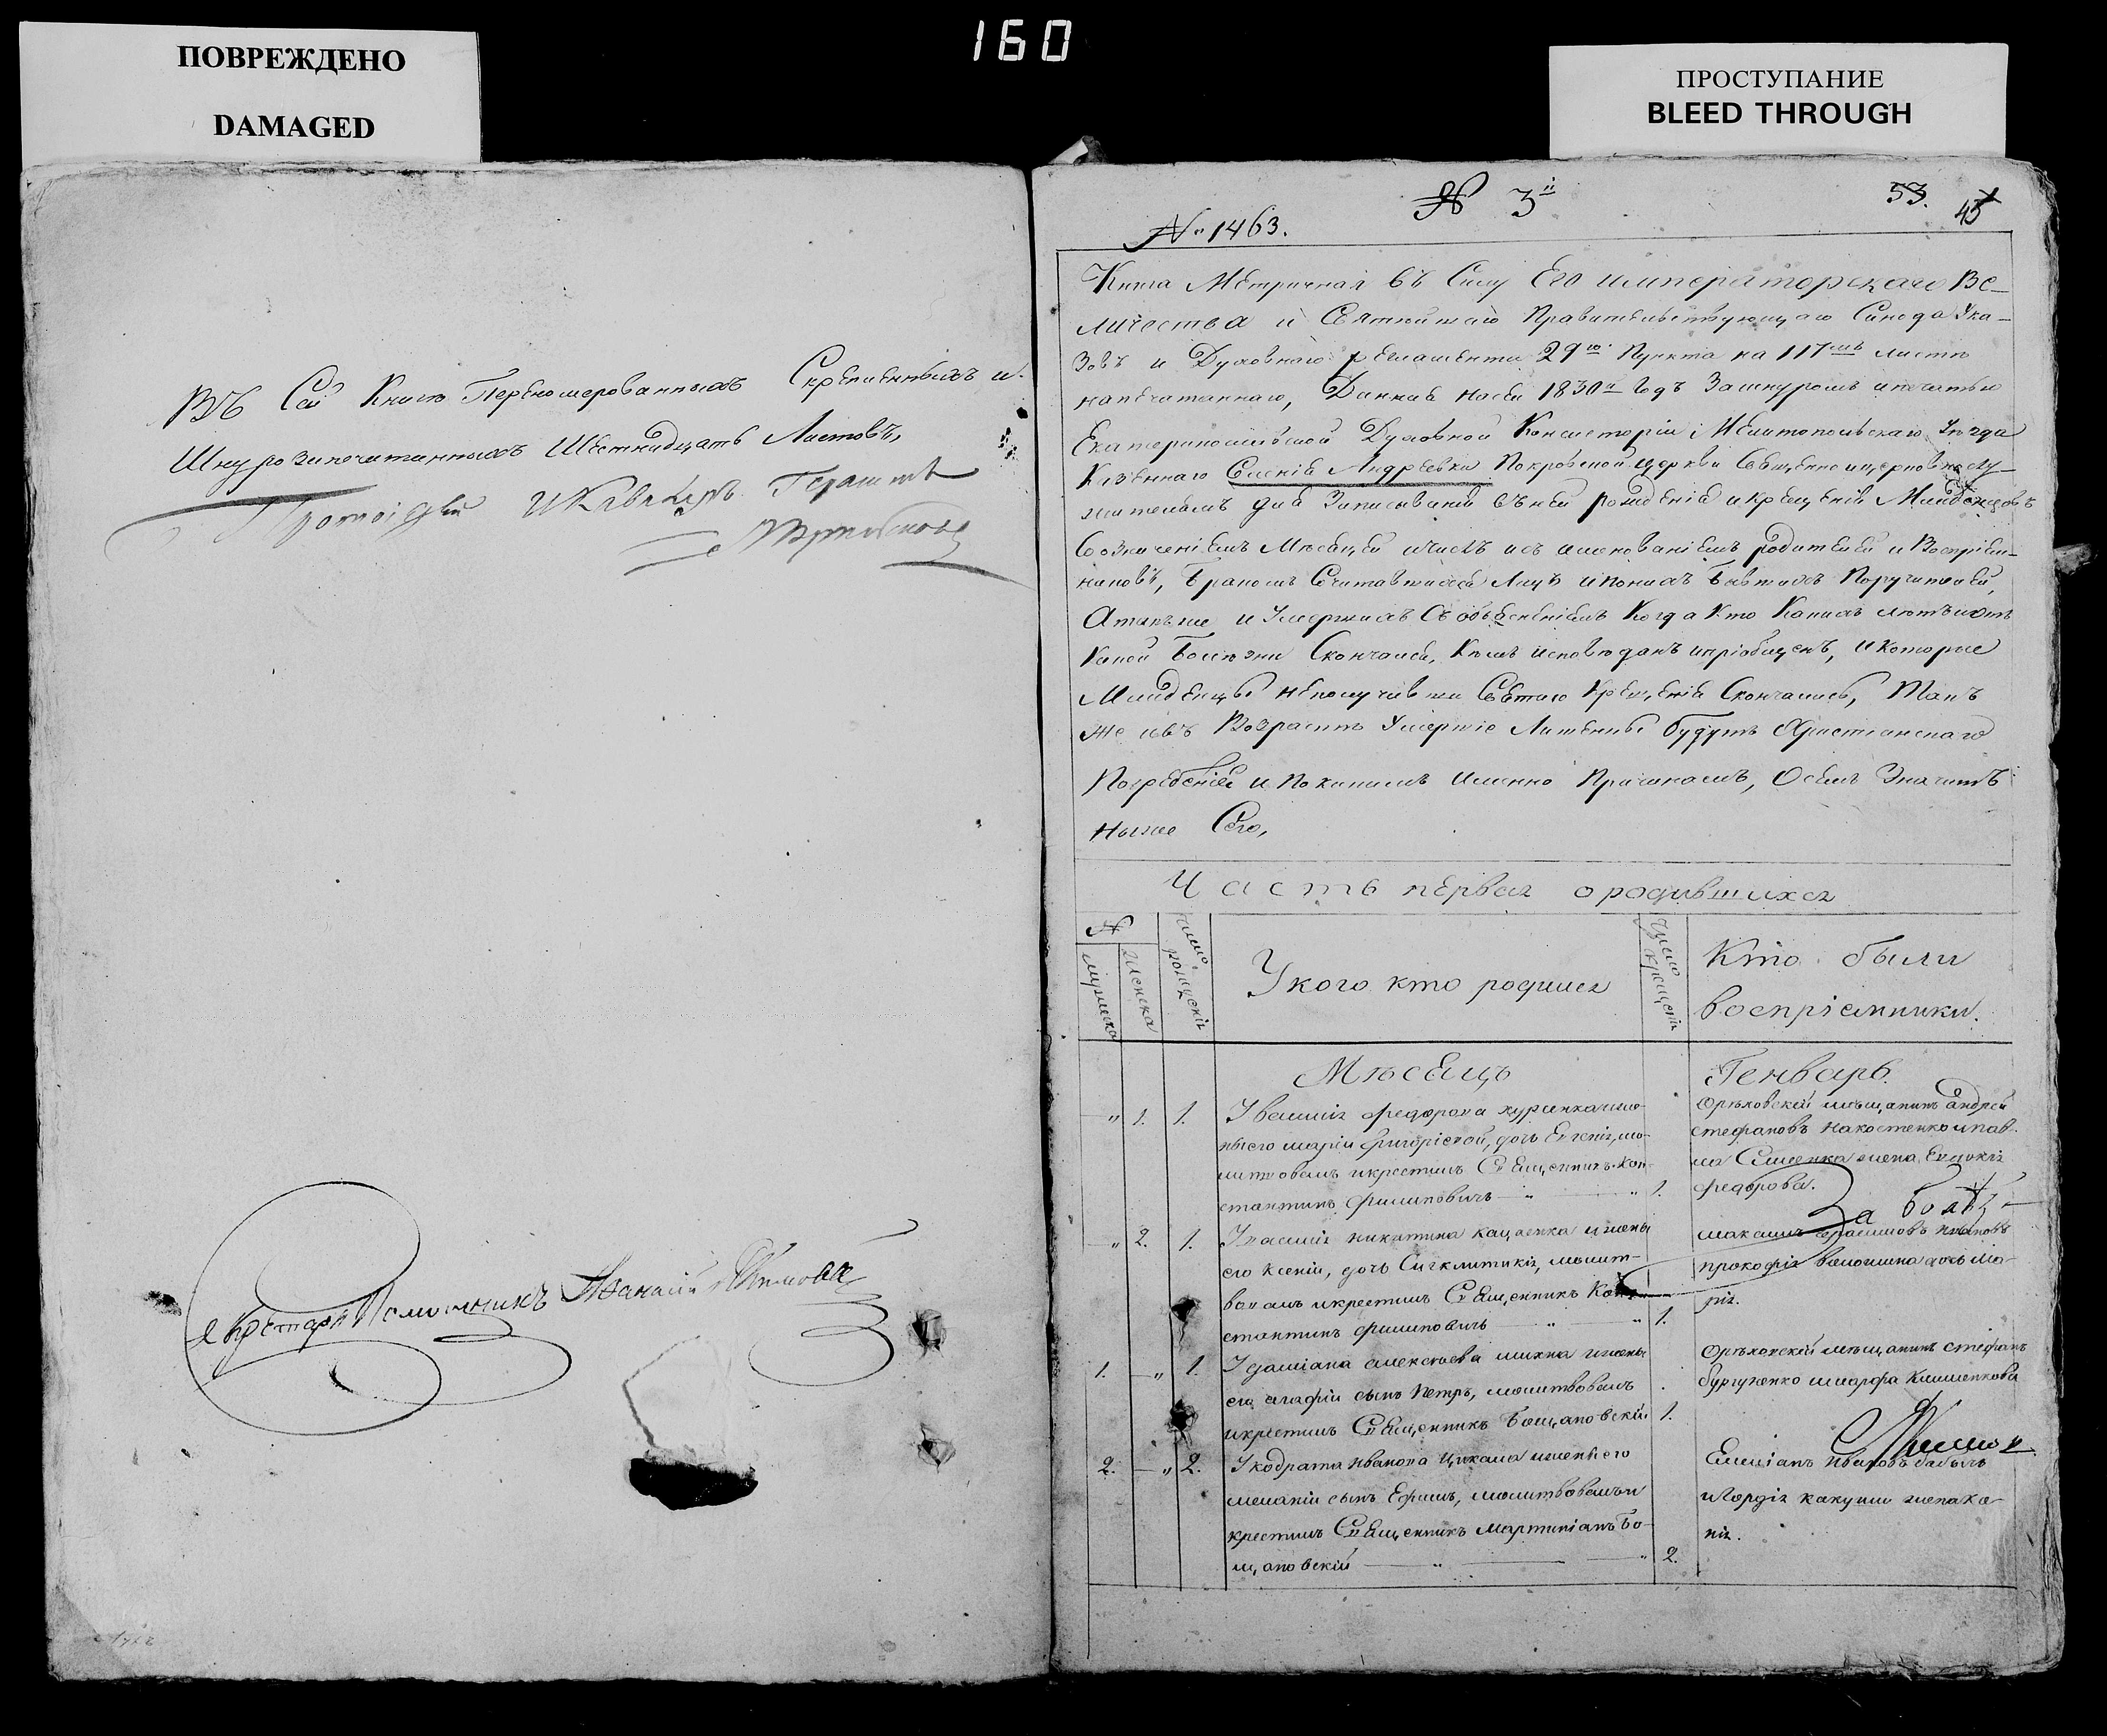 160
ПОВРЕЖДЕНО
DAMAGED
ПРОСТУПАНИЕ
BLEED THROUGH
ВЪ Сей Книге Перенумерованныхъ Скрепленныхъ и
Шнурозапечатанныхъ Шестнадцать Листовъ,
Протоіерей и Кавалеръ
Секретарь
Помощникъ
№ 3й
53.
45
№ 1463.
Книга Метричная въ Силу Его Императорскаго Ве-
личества и Святейшаго Правительствующаго Синода Ука-
зовъ и Духовнаго регламента 29го Пункта на 117мъ листе
напечатаннаго, Данная на сей 1830й Годъ За шнуромъ и печатью
Екатеринославской Духовной Консисторіи Мелитопольскаго Уезда
Казеннаго Селенія Андреевки Покровской Церкви Священноцерковнослу-
жителямъ для Записыванія въ ней рожденія и крещенія Младенцовъ
Созначеніемъ Месяцей и чиселъ и съ именованіемъ родителей и Воспріем-
никовъ, Бракомъ Сочитавшихся Лицъ и по нихъ Бывшихъ Поручителей,
А также и Умершихъ Собьясненіемъ Когда Кто Какихъ летъ и отъ
Какой Болезни Скончался, Кемъ исповеданъ и пріобщенъ, и которые
Младенцы неполучивши Святаго Крещенія Скончались, Такъ
же и въ Возрасте Умершіе Лишенны будутъ Христіанскаго
Погребенія и По какимъ именно Причинамъ, О семъ Значитъ
ниже Сего,
Часть первая о родившихся
№
мужеска
женска
число рожденія
У кого кто родился
число крещенія
Кто были
воспріемники.
Месяцъ
Генварь.
" 1. 1.
У василія федорова журенка и же-
ны его маріи григоріевой, дочь Евгенія, мо-
литвовалъ и крестилъ Священникъ Кон-
стантинъ филиповичъ — " — " 1.
Ореховскій мещанинъ андрей
стефановъ Накостенко и пав-
ла Симченка жена Евдокія
федорова.
" 2. 1.
никитина кацаенка и жены
его ксеніи, дочь Сигклитикія, молит-
вовалъ и крестилъ Священникъ Кон-
стантинъ филиповичъ — " — " 1.
прокофія волошина дочь ма-
рія.
1. — " 1.
У даміана алексеева михна и жены
его агафіи сынъ Петръ, молитвовалъ
и крестилъ Священникъ Бощановскій 1.
Ореховскій мещанинъ стефанъ
бургученко и марфа Клименкова
2. — " 2.
У кодрата Иванова Цикала и жены его
меланіи сынъ Ефимъ, молитвовалъ и
крестилъ Священникъ мартиніанъ Бо-
щановскій — " — " 2.
Емиліанъ Ивановъ бабичъ